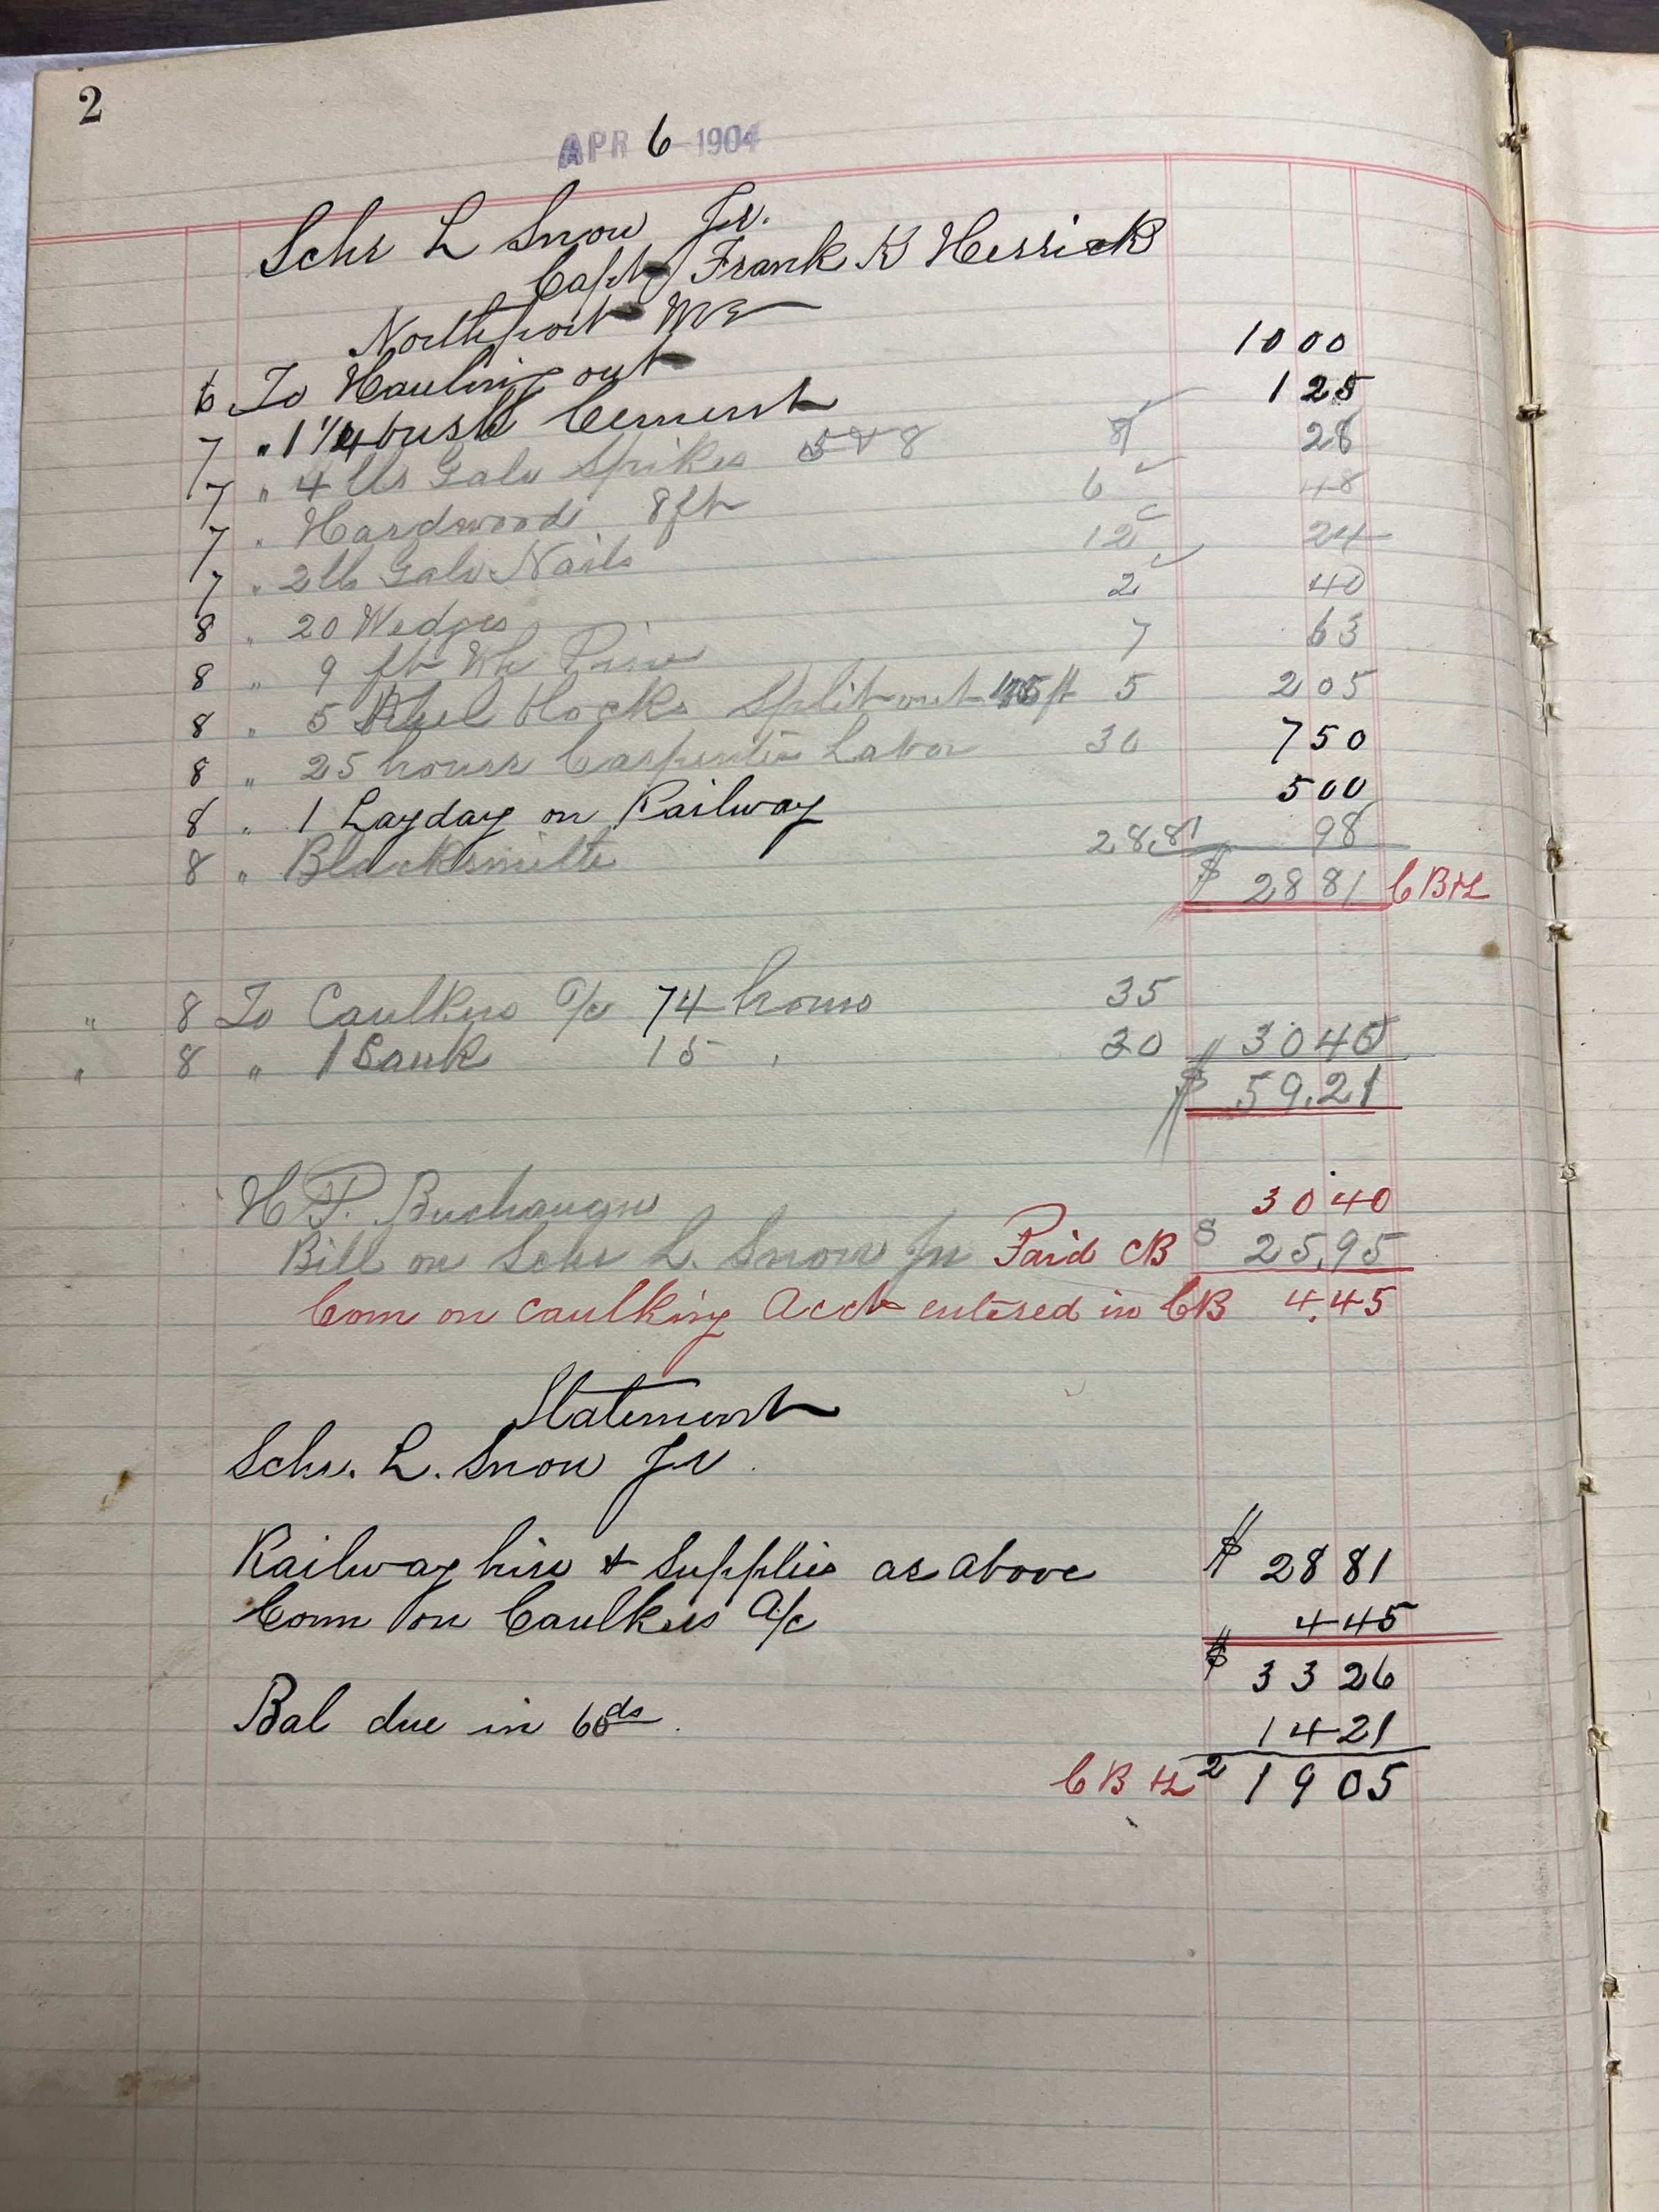 2
APR 6 1904
Schr L Snow Jr.
Capt Frank K Herrick
Northport ME
6 To Hauling out 10 00
7 " 1 1/4 bush Cement 1 25
7 " 4 lbs Galv Spikes 5 & 8 28
7 " Hardwood 8 ft 6 48
7 " 2 lb Galv Nails 12 24
8 " 20 Wedges 2 40
8 " 9 ft Wh Pine 7 63
8 " 5 Keel Blocks Split out ft 5 2 05
8 " 25 hours Carpenters Labor 30 7 50
8 " 1 Layday on Railway 5 00
8 " Blacksmith 28,81 98
$ 28 81 CBH
" 8 To Caulkers a/c 74 hours 35
" 8 " 1 15 " 30 $ 30 40
$ 59.21
H P. 30 40
Bill on Schr L. Snow Jr Paid CB $ 25.95
Com on caulking Acct entered in CB 4.45
Statement
Schr. L. Snow Jr.
Railway hire & Supplies as above $ 28 81
Com on Caulkers A/c 4 45
$ 33 26
Bal due in 60 ds. 14 21
CBH 2 19 05